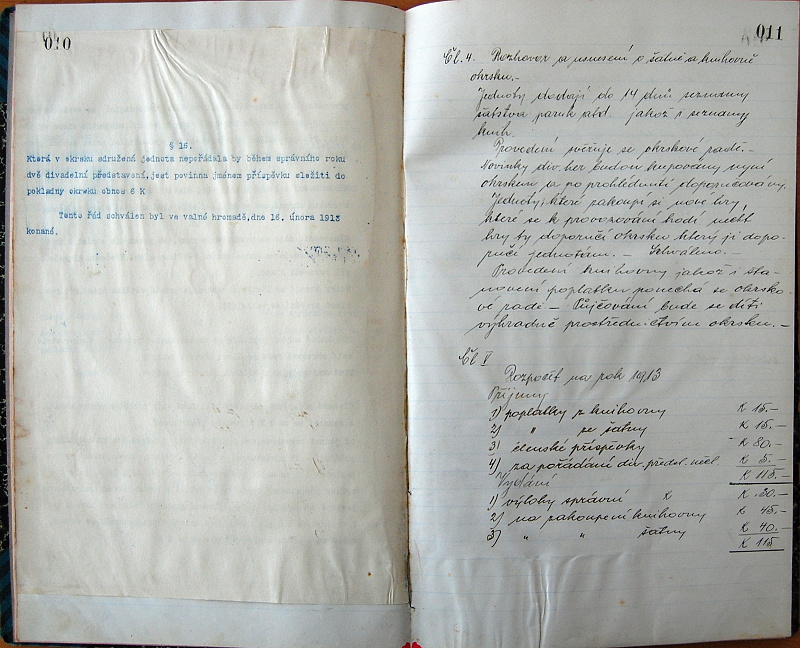 010
§ 15.
Která v okrsku sdružená jednota nepořádala by během správního roku
dvě divadelní představení, jest povinna jménem příspěvku složiti do
pokladny okrsku obnos 6 K
Tento řád schválen byl ve valné hromadě, dne 16. února 1913
konané.
011
Čl. 4. Rozhovor a usnesení o šatně a knihovně
okrsku.-
Jednoty dodají do 14 dnů seznamy
šatstva paruk atd. jakož i seznamy
knih.
Provedení svěřuje se okrskové radě.-
Novinky div. her budou kupovány nyní
okrskem a po prohlédnutí doporučovány.
Jednoty, které zakoupí si nové hry,
které se k provozování hodí
hry ty doporučí okrsku který je dopo-
ručí jednotám. - Schváleno. -
Provedení knihovny jakož i sta-
novení poplatku ponechá se okrsko-
vé radě - Půjčování bude se díti
výhradně prostřednictvím okrsku. -
Čl V
Rozpočet na rok 1913
Příjmy
1) poplatky z knihovny K 15.-
2) " ze šatny K 15.-
3) členské příspěvky K 80.-
4) za pořádání div. předst. K 5.-
K 115.-
Vydání
1) výlohy správní K K 30.-
2) na zakoupení knihovny K 45.-
3) " " šatny K 40.-
K 115